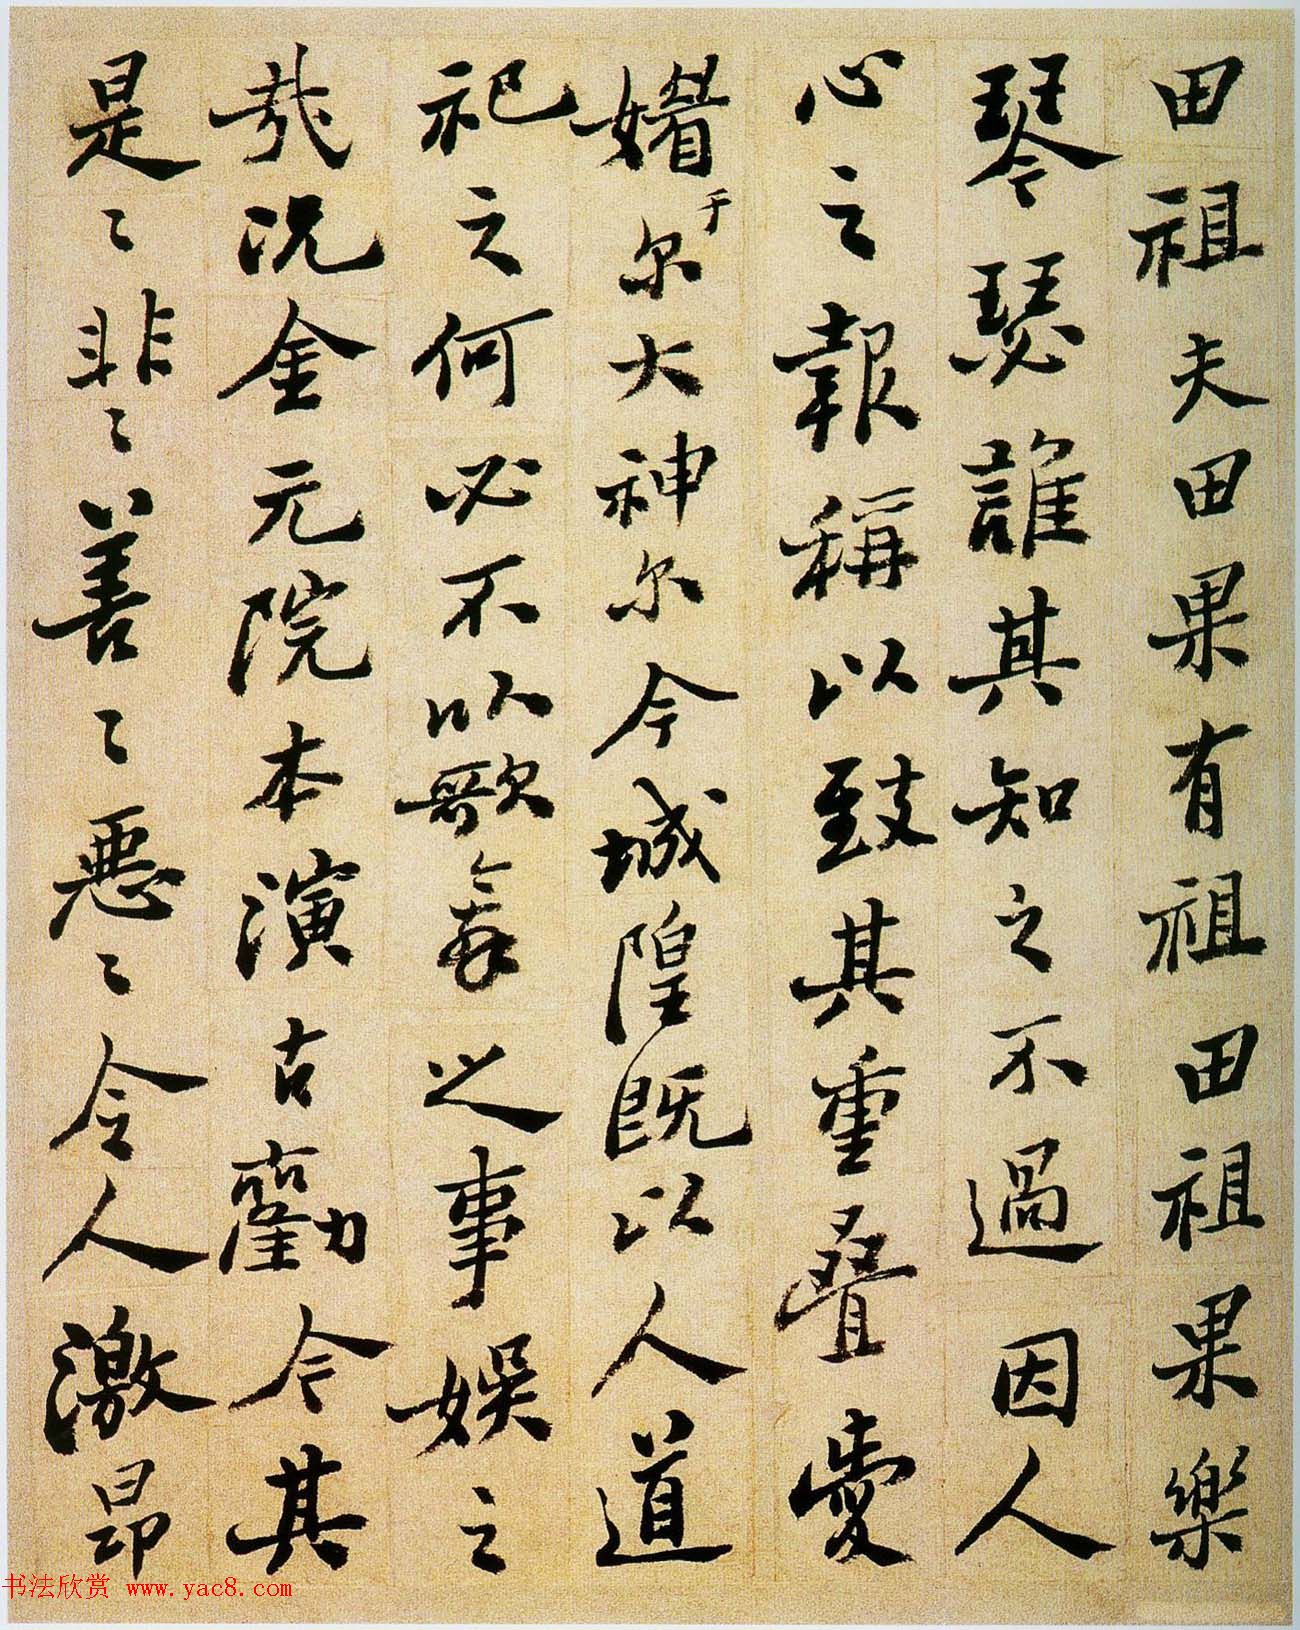 田祖夫田果有祖田祖果樂
琴瑟誰其知之不過因人
心之報稱以致其重疊愛
媚于尔大神尔今城隍既以人道
祀之何必不以歌舞之事娱之
哉况金元院本演古勸今其
是〻非〻善〻惡〻令人激昂
书法欣赏 www.yac8.com